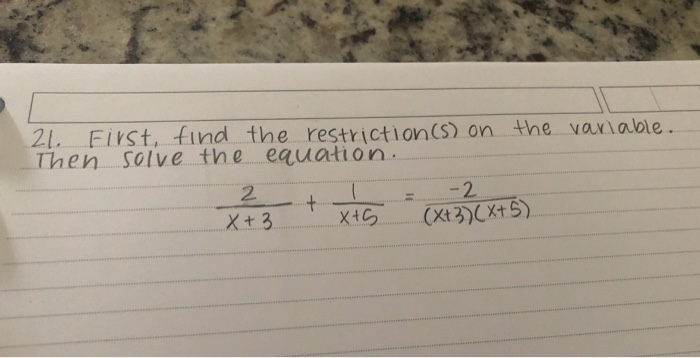 21. First, find the restriction(s) on the variable.
Then solve the equation.
2/(x+3) + 1/(x+5) = -2/((x+3)(x+5))